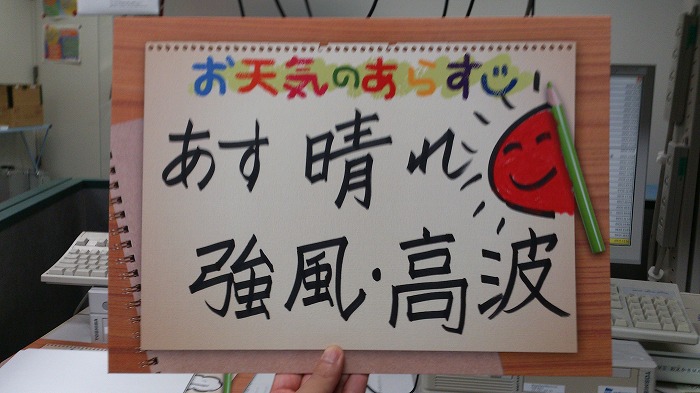 お天気のあらすじ
あす 晴れ
強風・高波